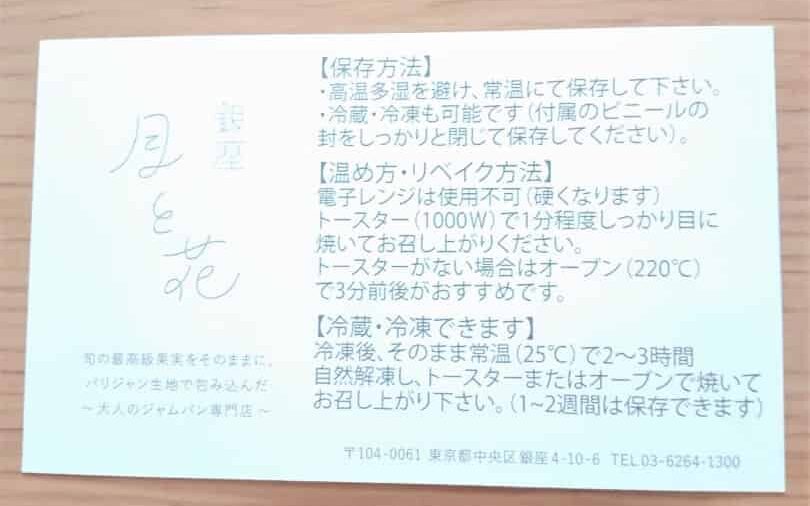 銀座
月と花
旬の最高級果実をそのままに。
パリジャン生地で包み込んだ
〜大人のジャムパン専門店〜
【保存方法】
・高温多湿を避け、常温にて保存して下さい。
・冷蔵・冷凍も可能です(付属のビニールの
封をしっかりと閉じて保存してください)。
【温め方・リベイク方法】
電子レンジは使用不可(硬くなります)
トースター(1000W)で1分程度しっかり目に
焼いてお召し上がりください。
トースターがない場合はオーブン(220℃)
で3分前後がおすすめです。
【冷蔵・冷凍できます】
冷凍後、そのまま常温(25℃)で2〜3時間
自然解凍し、トースターまたはオーブンで焼いて
お召し上がり下さい。(1~2週間は保存できます)
〒104-0061 東京都中央区銀座4-10-6 TEL.03-6264-1300